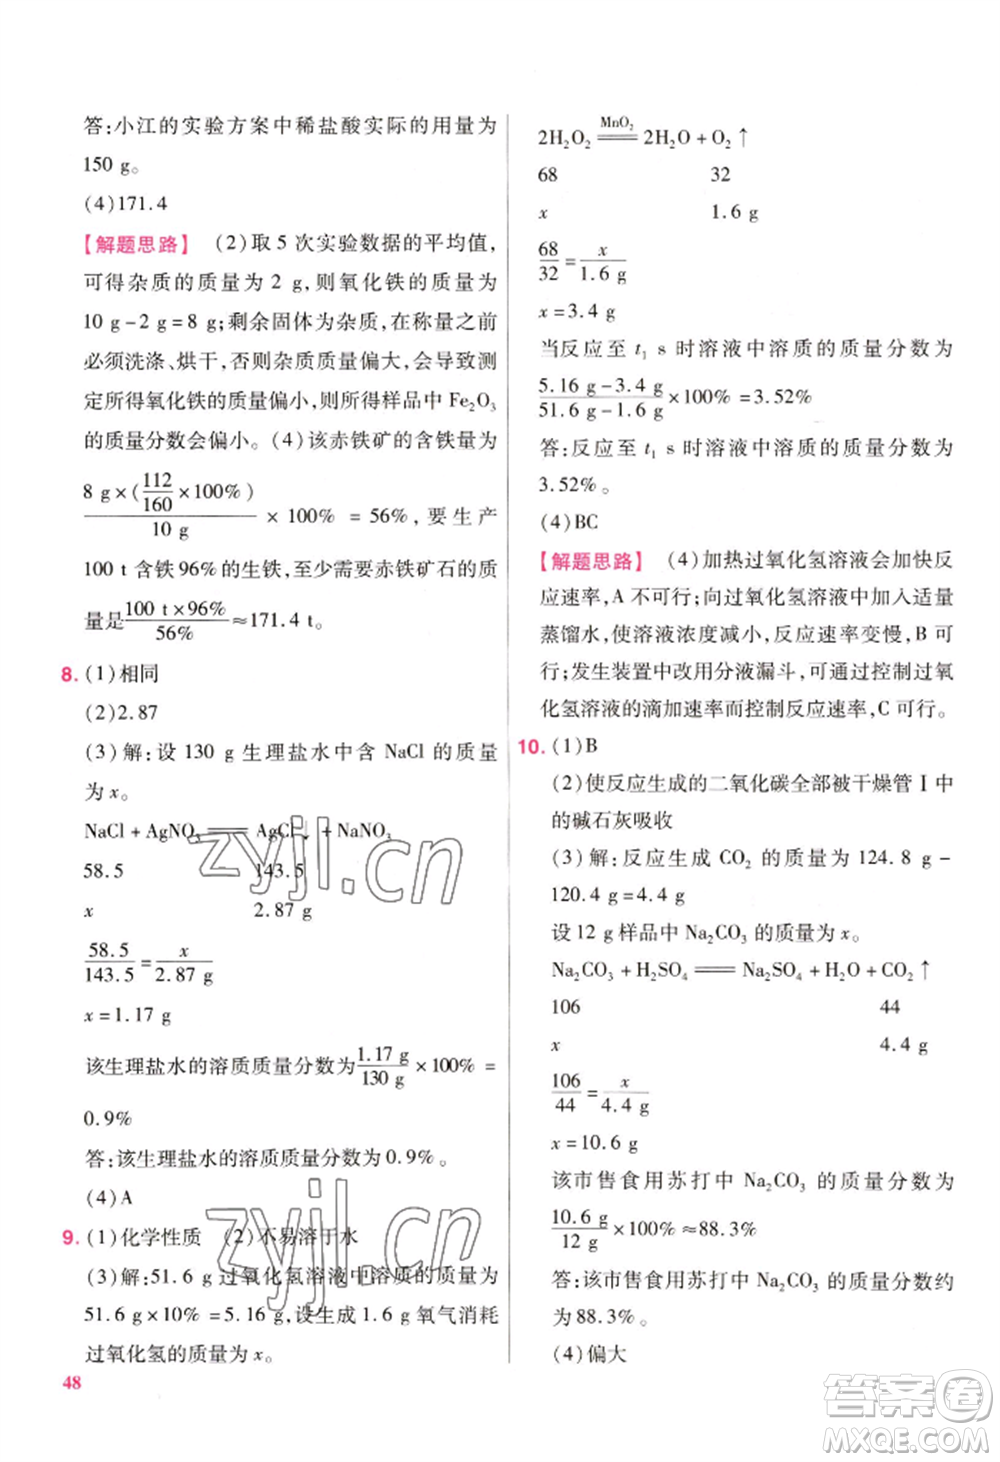 答:小江的实验方案中稀盐酸实际的用量为
150 g。
(4)171.4
【解题思路】 (2)取 5 次实验数据的平均值,
可得杂质的质量为 2 g,则氧化铁的质量为
10 g-2 g=8 g;剩余固体为杂质,在称量之前
必须洗涤、烘干,否则杂质质量偏大,会导致测
定所得氧化铁的质量偏小,则所得样品中 Fe₂O₃
的质量分数会偏小。(4)该赤铁矿的含铁量为
8 g×(112/160×100%)/10 g × 100% = 56%,要生产
100 t 含铁96%的生铁,至少需要赤铁矿石的质
量是 100 t×96%/56% ≈171.4 t。
8. (1)相同
(2)2.87
(3)解:设 130 g 生理盐水中含 NaCl 的质量
为 x。
NaCl + AgNO₃ ═══ AgCl↓ + NaNO₃
58.5 143.5
x 2.87 g
58.5/143.5 = x/2.87 g
x = 1.17 g
该生理盐水的溶质质量分数为 1.17 g/130 g ×100% =
0.9%
答:该生理盐水的溶质质量分数为 0.9%。
(4)A
9. (1)化学性质 (2)不易溶于水
(3)解:51.6 g 过氧化氢溶液中溶质的质量为
51.6 g×10% = 5.16 g,设生成 1.6 g 氧气消耗
过氧化氢的质量为 x。
48
2H₂O₂ ═MnO₂═ 2H₂O + O₂↑
68 32
x 1.6 g
68/32 = x/1.6 g
x = 3.4 g
当反应至 t₁ s 时溶液中溶质的质量分数为
5.16 g-3.4 g/51.6 g-1.6 g ×100% =3.52%
答:反应至 t₁ s 时溶液中溶质的质量分数为
3.52%。
(4)BC
【解题思路】 (4)加热过氧化氢溶液会加快反
应速率,A 不可行;向过氧化氢溶液中加入适量
蒸馏水,使溶液浓度减小,反应速率变慢,B 可
行;发生装置中改用分液漏斗,可通过控制过氧
化氢溶液的滴加速率而控制反应速率,C 可行。
10. (1)B
(2)使反应生成的二氧化碳全部被干燥管Ⅰ中
的碱石灰吸收
(3)解:反应生成 CO₂ 的质量为 124.8 g-
120.4 g=4.4 g
设 12 g 样品中 Na₂CO₃ 的质量为 x。
Na₂CO₃ + H₂SO₄ ═══ Na₂SO₄ + H₂O + CO₂↑
106 44
x 4.4 g
106/44 = x/4.4 g
x = 10.6 g
该市售食用苏打中 Na₂CO₃ 的质量分数为
10.6 g/12 g ×100% ≈88.3%
答:该市售食用苏打中 Na₂CO₃ 的质量分数约
为 88.3%。
(4)偏大
zyjl.cn
zyjl.cn
答案卷
MXQE.COM